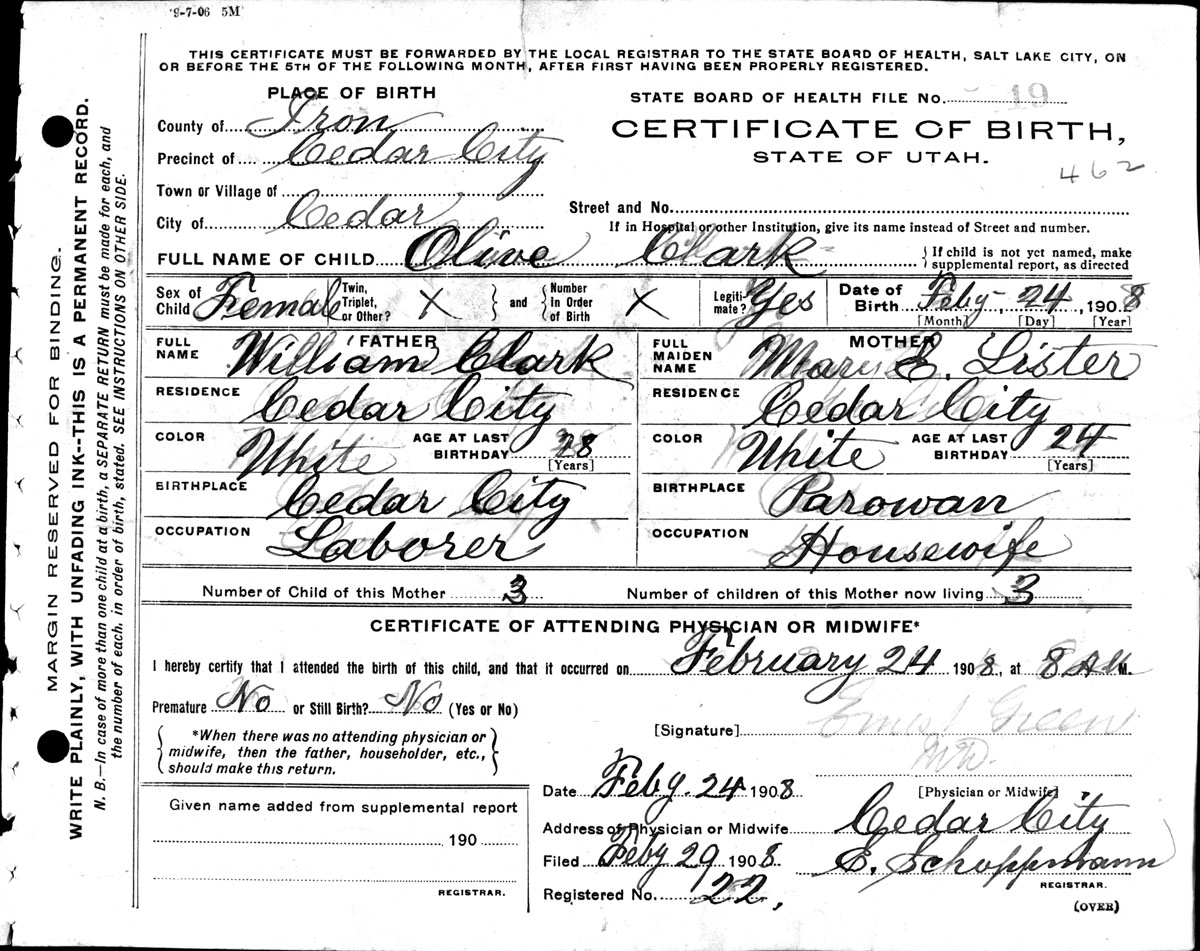 9-7-06 5M
THIS CERTIFICATE MUST BE FORWARDED BY THE LOCAL REGISTRAR TO THE STATE BOARD OF HEALTH, SALT LAKE CITY, ON
OR BEFORE THE 5TH OF THE FOLLOWING MONTH, AFTER FIRST HAVING BEEN PROPERLY REGISTERED.
MARGIN RESERVED FOR BINDING.
WRITE PLAINLY, WITH UNFADING INK--THIS IS A PERMANENT RECORD.
N. B.—In case of more than one child at a birth, a SEPARATE RETURN must be made for each, and
the number of each, in order of birth, stated. SEE INSTRUCTIONS ON OTHER SIDE.
PLACE OF BIRTH
County of Iron
Precinct of Cedar City
Town or Village of
City of Cedar
STATE BOARD OF HEALTH FILE No. 19
CERTIFICATE OF BIRTH,
STATE OF UTAH.
462
Street and No.
If in Hospital or other Institution, give its name instead of Street and number.
FULL NAME OF CHILD Olive Clark { If child is not yet named, make
supplemental report, as directed
Sex of Child Female Twin, Triplet, or Other? X } and { Number In Order of Birth X Legiti-mate? Yes Date of Birth Feby- 24, 1908
[Month] [Day] [Year]
FATHER
FULL NAME William Clark
RESIDENCE Cedar City
COLOR White AGE AT LAST BIRTHDAY 28
[Years]
BIRTHPLACE Cedar City
OCCUPATION Laborer
MOTHER
FULL MAIDEN NAME Mary E. Lister
RESIDENCE Cedar City
COLOR White AGE AT LAST BIRTHDAY 24
[Years]
BIRTHPLACE Parowan
OCCUPATION Housewife
Number of Child of this Mother 3 Number of children of this Mother now living 3
CERTIFICATE OF ATTENDING PHYSICIAN OR MIDWIFE*
I hereby certify that I attended the birth of this child, and that it occurred on February 24 1908, at 8 A M.
Premature No or Still Birth? No (Yes or No)
{ *When there was no attending physician or
midwife, then the father, householder, etc.,
should make this return. }
[Signature] Ernest Green
M.D.
[Physician or Midwife]
Date Feby. 24 1908
Address of Physician or Midwife Cedar City
Filed Feby 29 1908 E. Schoppmann
REGISTRAR.
Registered No. 22,
(OVER)
Given name added from supplemental report
190
REGISTRAR.